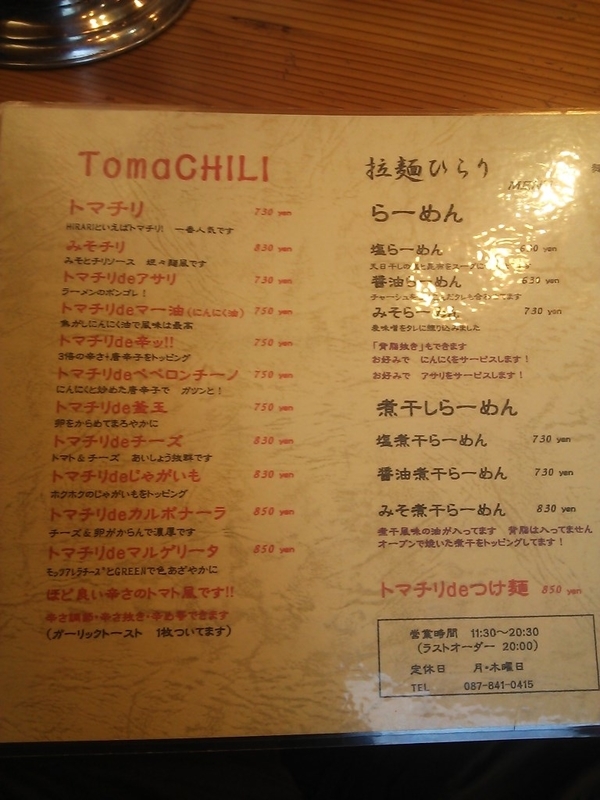 TomaCHILI
トマチリ 730 yen
HIRARIといえばトマチリ! 一番人気です
みそチリ 830 yen
みそとチリソース 坦々麺風です
トマチリdeアサリ 730 yen
ラーメンのボンゴレ!
トマチリdeマー油(にんにく油) 750 yen
焦がしにんにく油で風味は最高
トマチリde辛ッ!! 750 yen
3倍の辛さ+唐辛子をトッピング
トマチリdeペペロンチーノ 750 yen
にんにくと炒めた唐辛子で ガツンと!
トマチリde釜玉 750 yen
卵をからめてまろやかに
トマチリdeチーズ 830 yen
トマト&チーズ あいしょう抜群です
トマチリdeじゃがいも 830 yen
ホクホクのじゃがいもをトッピング
トマチリdeカルボナーラ 850 yen
チーズ&卵がからんで濃厚です
トマチリdeマルゲリータ 850 yen
モッツアレラチーズとGREENで色あざやかに
ほど良い辛さのトマト風です!!
辛さ調節・辛さ抜き・辛め等できます
(ガーリックトースト 1枚ついてます)
拉麺ひらり
らーめん
塩らーめん
醤油らーめん 630 yen
みそらーめん 730 yen
麦味噌をタレに練り込みました
「背脂抜き」もできます
お好みで にんにくをサービスします!
お好みで アサリをサービスします!
煮干しらーめん
塩煮干らーめん 730 yen
醤油煮干らーめん 730 yen
みそ煮干らーめん 830 yen
煮干風味の油が入ってます 背脂は入ってません
オーブンで焼いた煮干をトッピングしてます!
トマチリdeつけ麺 850 yen
営業時間 11:30~20:30
(ラストオーダー 20:00)
定休日 月・木曜日
TEL 087-841-0415